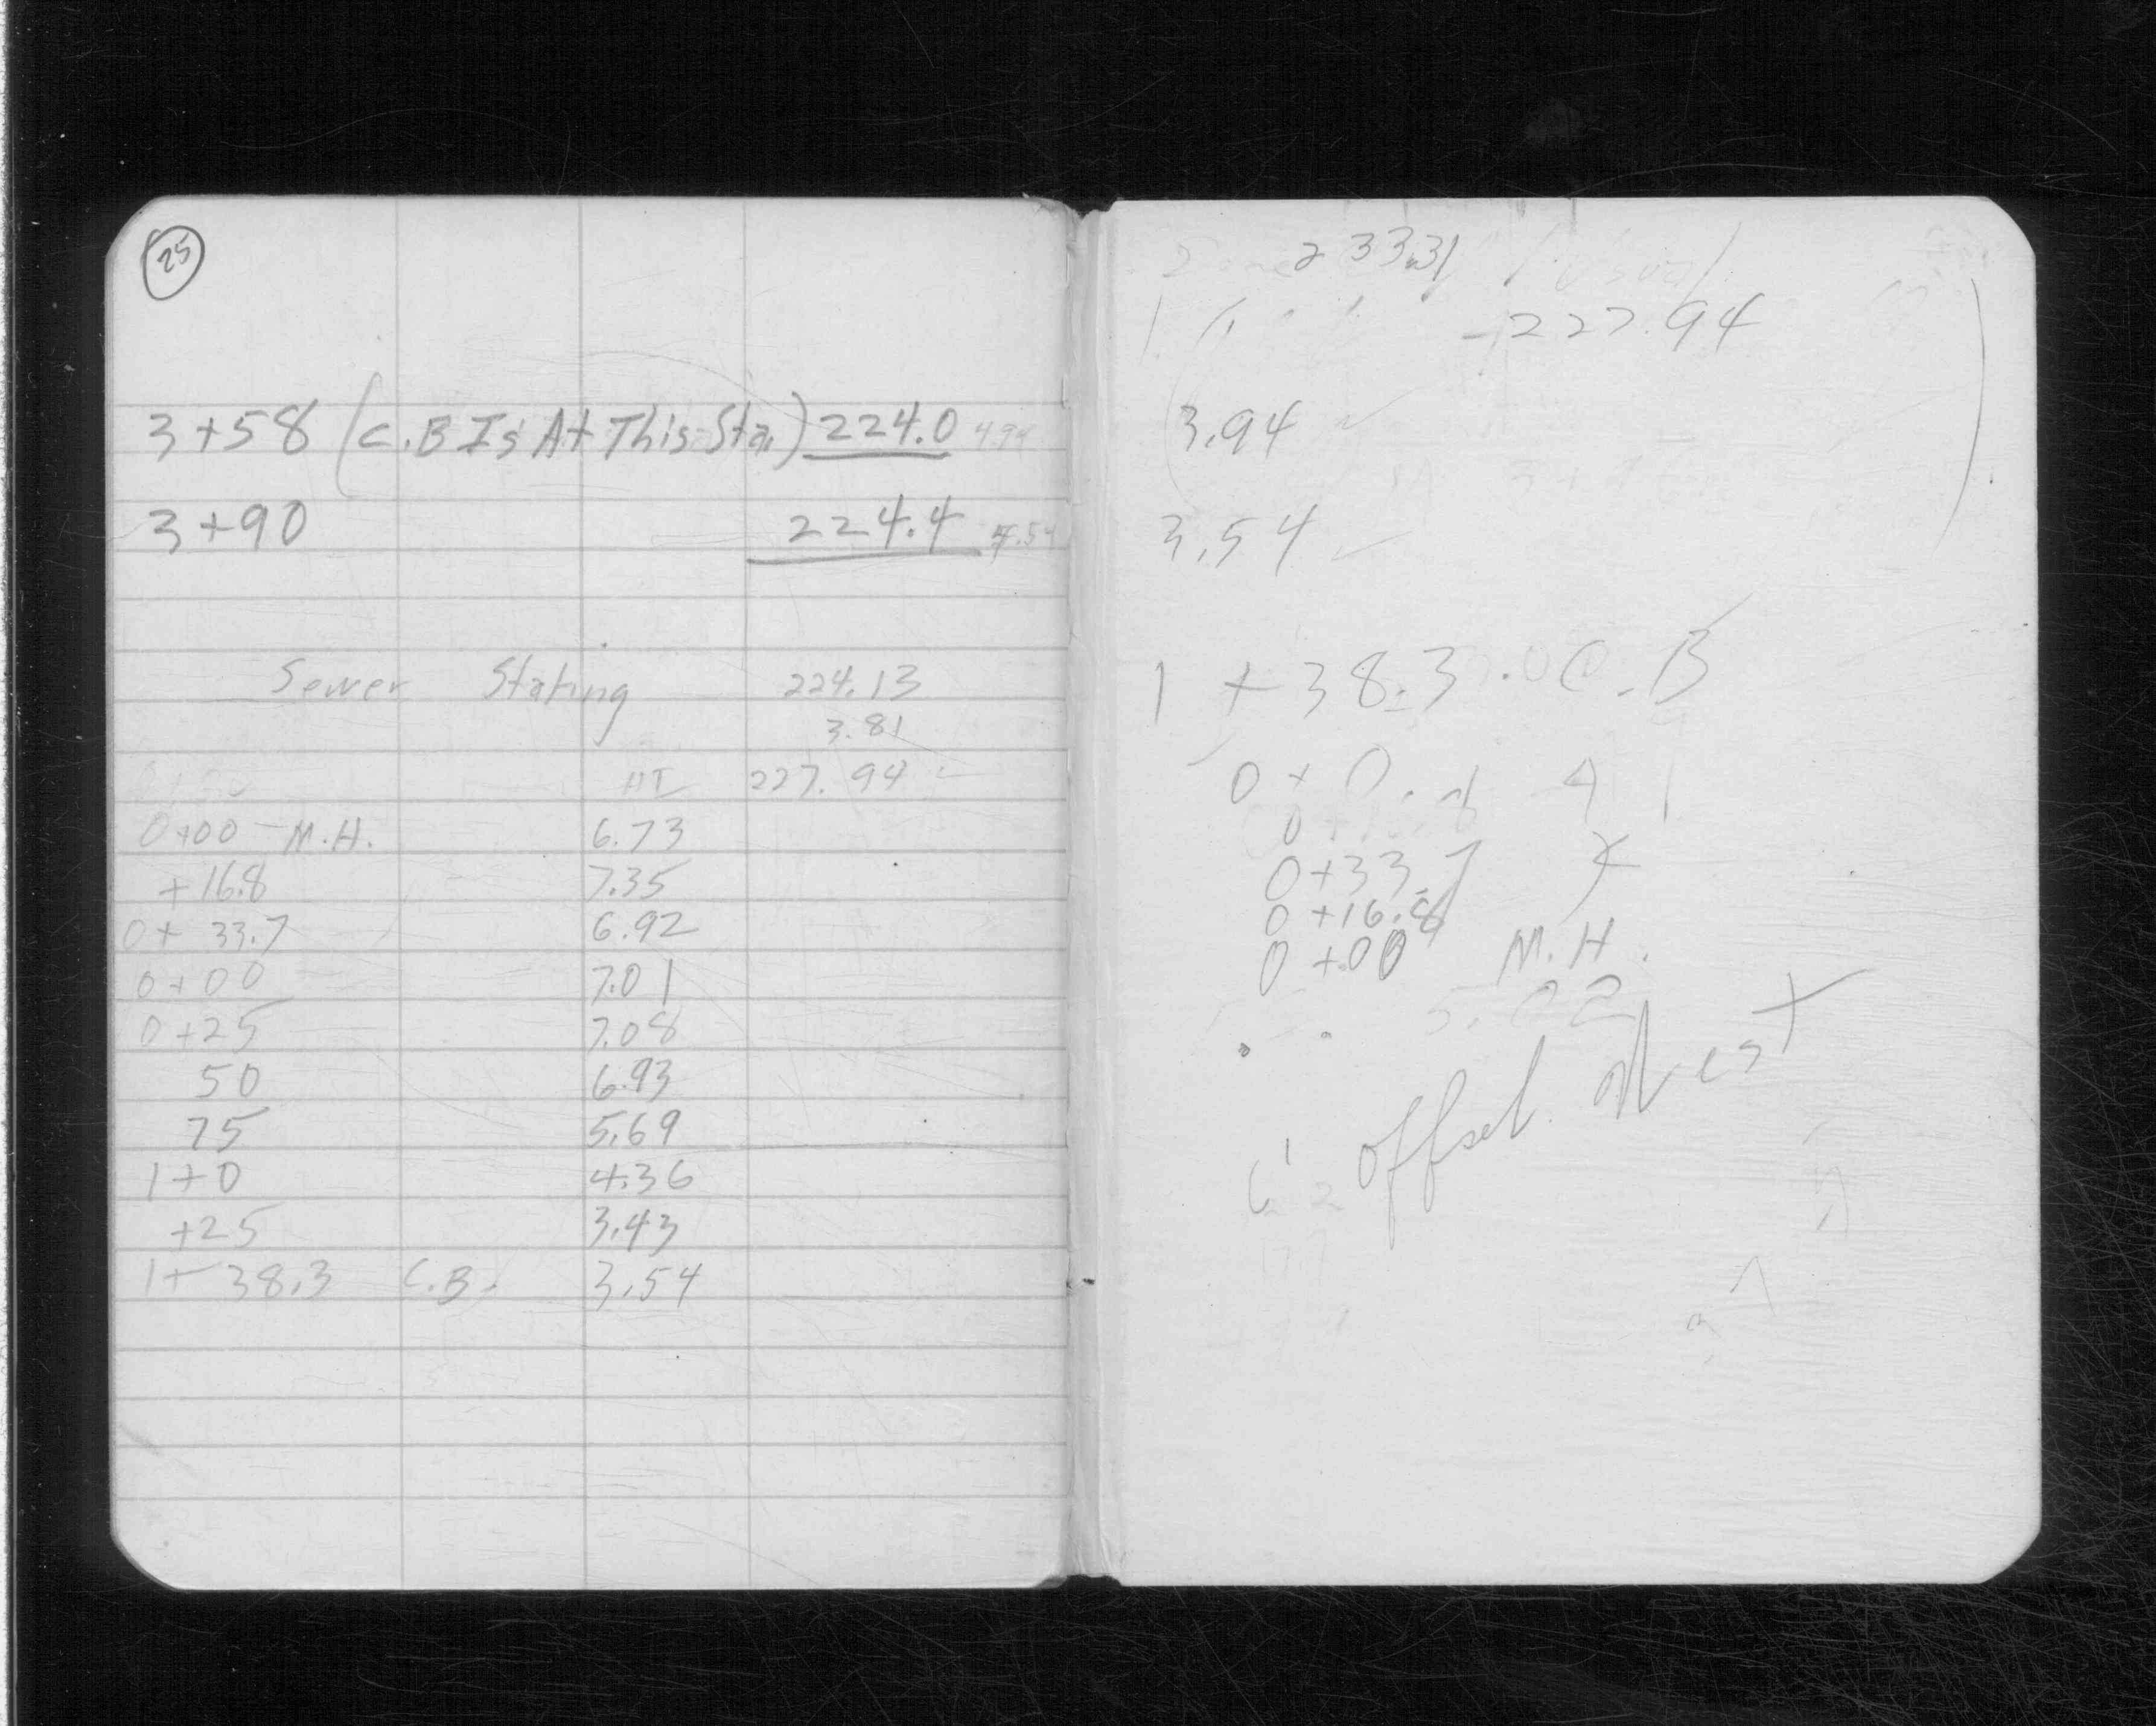 25
3+58 (C.B Is At This Sta.) 224.0 4.94
3+90 224.4 4.54
Sewer Stating 224.13
3.81
HI 227.94
0+00 - M.H. 6.73
+16.8 7.35
0+ 33.7 6.92
0+00 7.01
0+25 7.08
50 6.93
75 5.69
1+0 4.36
+25 3.43
1+ 38.3 C.B. 3.54
233.31
227.94
3.94
3.54
1 + 38.3 C.B
0+0
0+33.7
0+16.8
0+00 M.H.
5.02
6' offset West